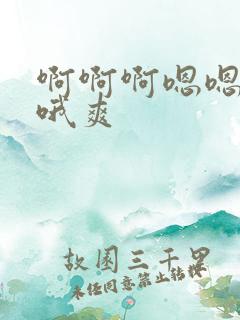 啊啊啊嗯嗯
哦爽
故园三千里
未经同意禁止转载